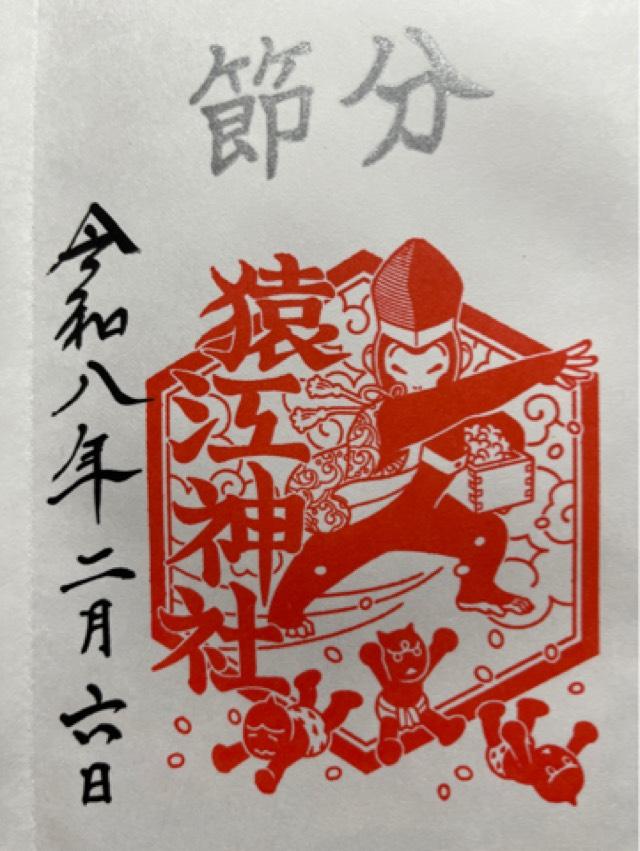 節分
猿江神社
令和八年二月六日